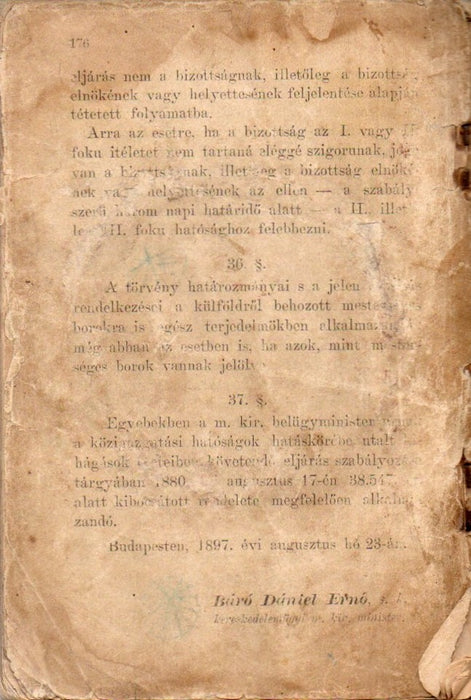 176
eljárás nem a bizottságnak, illetőleg a
elnökének vagy helyettesének feljelentése alapján
tétetett folyamatba.
Arra az esetre, ha a bizottság az I. vagy II.
foku itéletet nem tartaná eléggé szigorunak,
van a bizottságnak, illetőleg a bizottság
nek vagy helyettesének az ellen — a
szerű három napi határidő alatt — a II.,
III. foku hatósághoz felebbezni.
36. §.
A törvény határozmányai s a jelen
rendelkezései a külföldről behozott
borokra is egész terjedelmökben
még abban az esetben is, ha azok, mint
séges borok vannak
37. §.
Egyebekben a m. kir. belügyminister
a közigazgatási hatóságok hatáskörébe utalt
hágások eseteiben követendő eljárás
tárgyában 1880. augusztus 17-én 38.547
alatt kibocsátott rendelete megfelelően
zandó.
Budapesten, 1897. évi augusztus hó 23-án.
Báró Dániel Ernő,
kereskedelemügyi m. kir. minister.